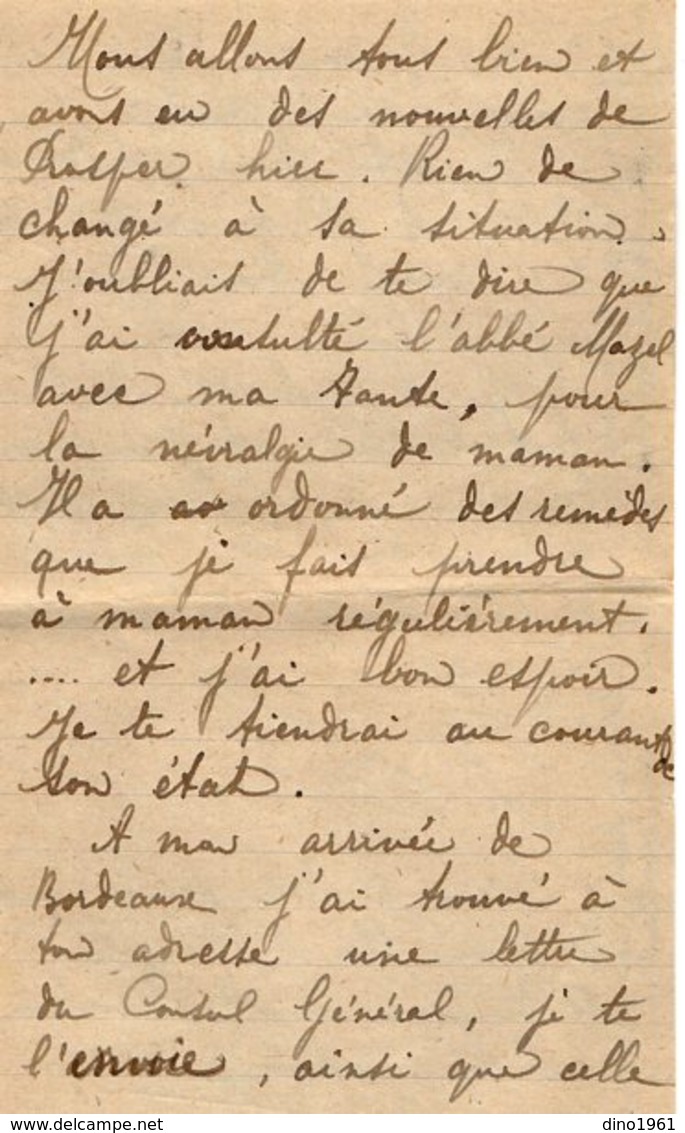 Nous allons tous bien et
avons eu des nouvelles de
Prosper hier. Rien de
changé à sa situation.
J'oubliais de te dire que
j'ai consulté l'abbé Mazel
avec ma Tante, pour
la névralgie de maman.
Il a ordonné des remèdes
que je fais prendre
à maman régulièrement.
.... et j'ai bon espoir.
Je te tiendrai au courant de
son état.
A mon arrivée de
Bordeaux j'ai trouvé à
ton adresse une lettre
du Consul Général, je te
l'envoie, ainsi que celle
delcampe.net
dino1961